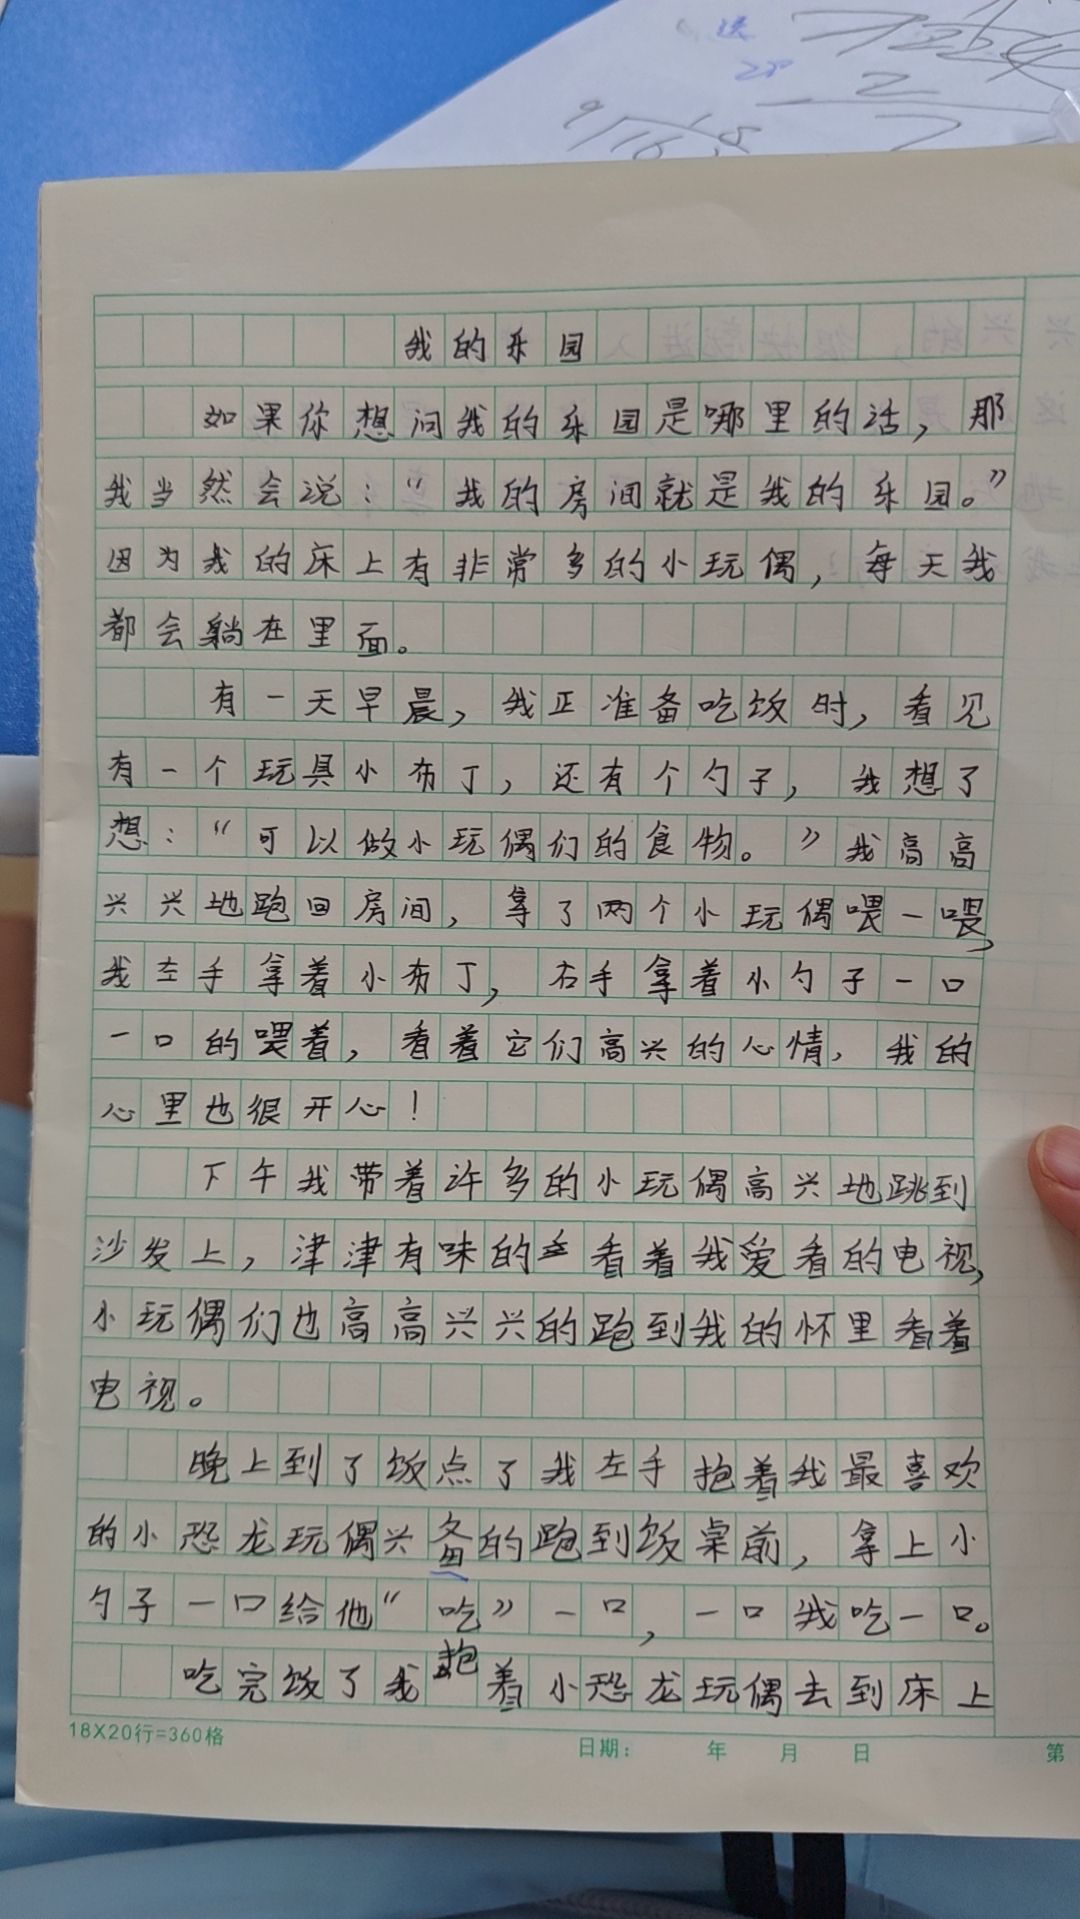 我的乐园
如果你想问我的乐园是哪里的话，那
我当然会说：“我的房间就是我的乐园。”
因为我的床上有非常多的小玩偶，每天我
都会躺在里面。
有一天早晨，我正准备吃饭时，看见
有一个玩具小布丁，还有个勺子，我想了
想：“可以做小玩偶们的食物。”我高高
兴兴地跑回房间，拿了两个小玩偶喂一喂，
我左手拿着小布丁，右手拿着小勺子一口
一口的喂着，看着它们高兴的心情，我的
心里也很开心！
下午我带着许多的小玩偶高兴地跳到
沙发上，津津有味的看着我爱看的电视，
小玩偶们也高高兴兴的跑到我的怀里看着
电视。
晚上到了饭点了我左手抱着我最喜欢
的小恐龙玩偶兴的跑到饭桌前，拿上小
勺子一口给他“吃”一口，一口我吃一口。
吃完饭了我抱着小恐龙玩偶去到床上
18X20行=360格
日期： 年 月 日
第